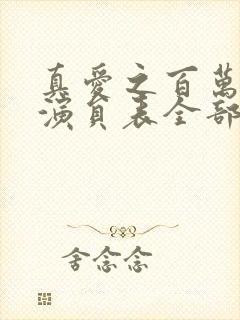 真爱之百萬
演員表全部
舍念念